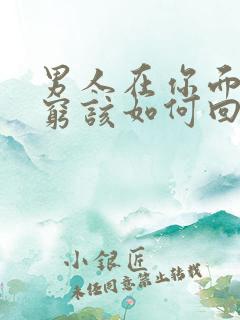 男人在你面
窮該如何回
小銀匠
未经同意禁止转载